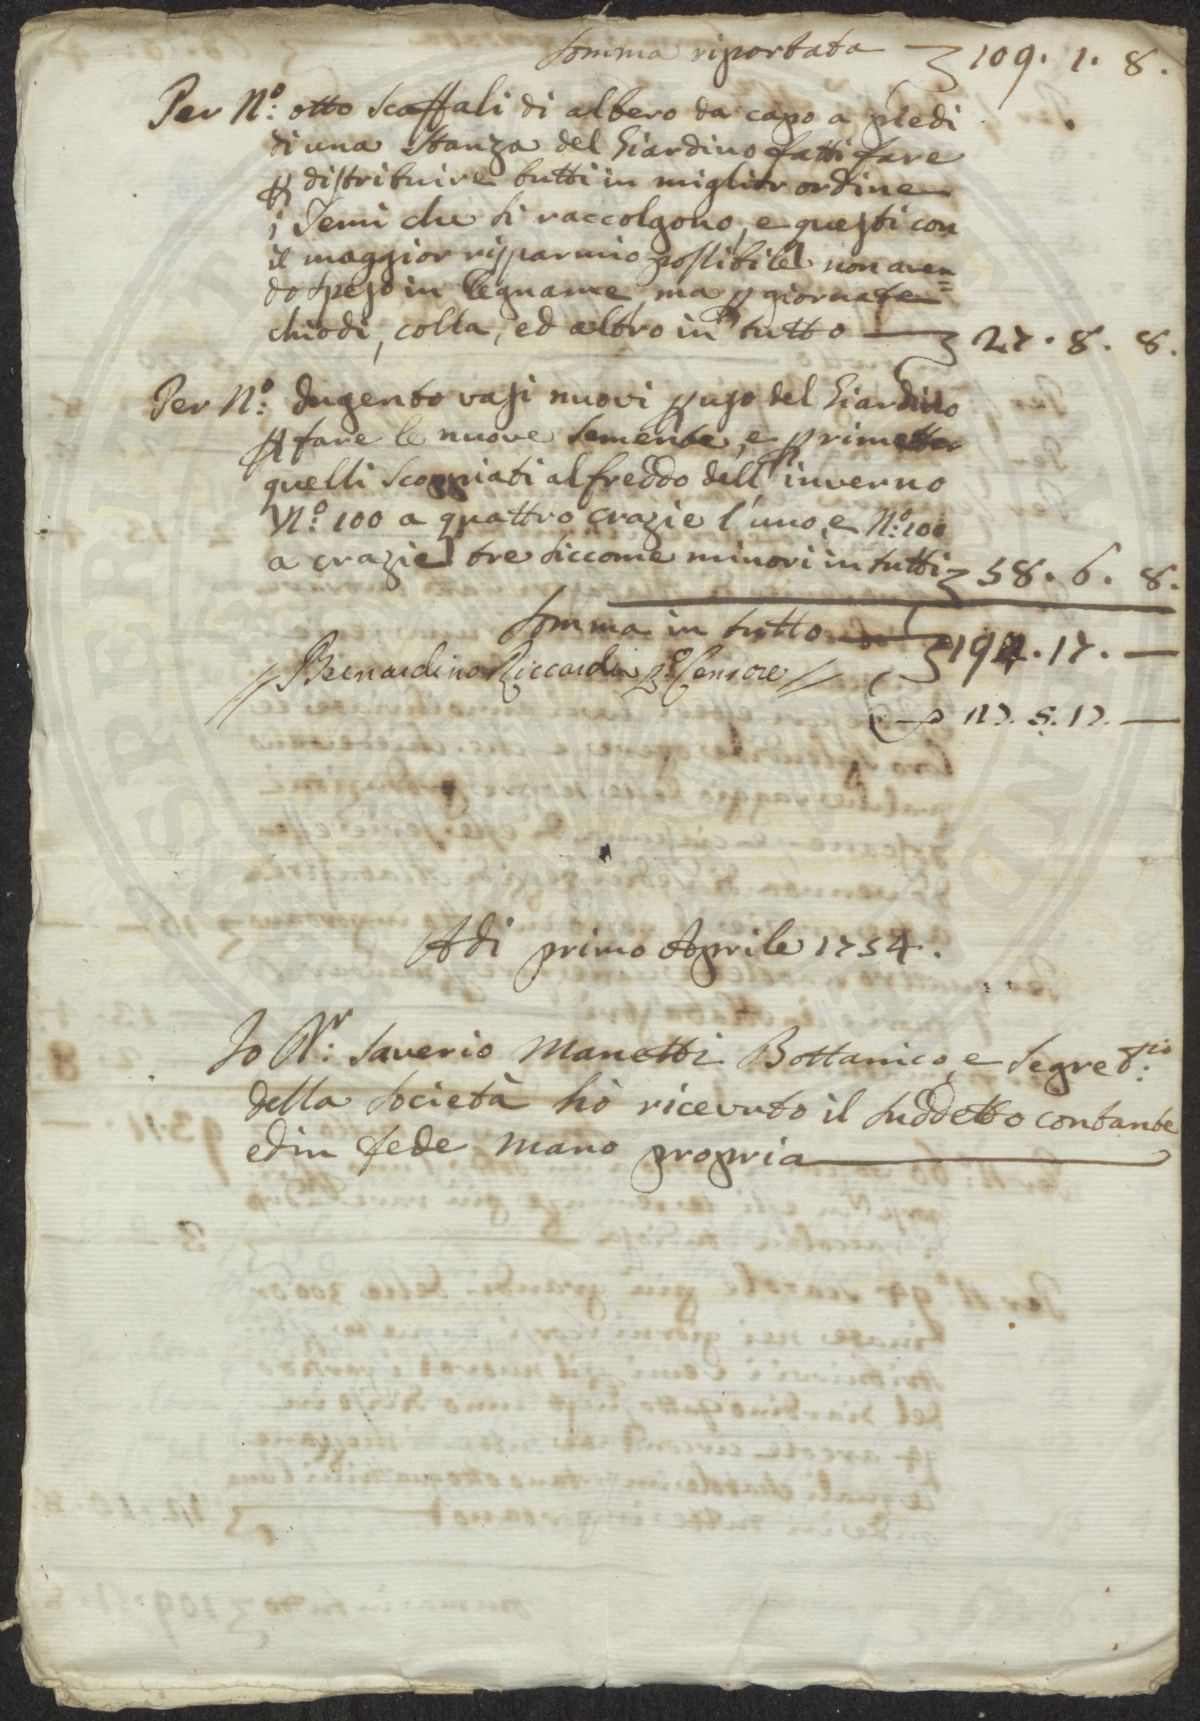 Somma riportata 109. 1. 8.
Per N.o: otto Scaffali di albero da capo a piedi
di una Stanza del Giardino fatti fare
p distribuire tutti in miglior ordine
i Semi che si raccolgono, e questi con
il maggior risparmio possibile non aven=
do speso in legname, ma p giornate
chiodi, colla, ed altro in tutto 27. 8. 8.
Per N.o: dugento vasi nuovi p uso del Giardino
p fare le nuove semente, e p rimetter
quelli scoppiati al freddo dell'inverno
N.o: 100 a quattro crazie l'uno, e N.o: 100
a crazie tre siccome minori in tutti 58. 6. 8.
Somma in tutto 194. 17. —
// Bernardino Riccardini Censore //
17. 5. 17. —
Adi primo Aprile 1754.
Io Dr: Saverio Manetti Bottanico, e Segret.rio
della Società hò ricevuto il suddetto contante
ed in fede mano propria